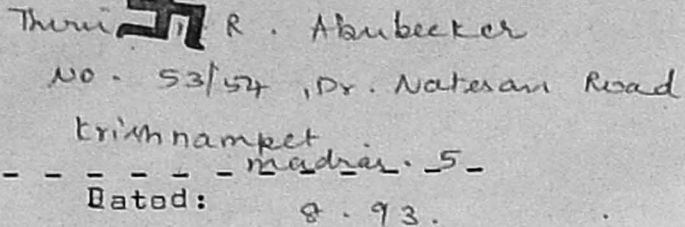 Thiru R. Abubecker
No. 53/54, Dr. Natesan Road
Krishnampet
madras. 5
Dated: 8.93.